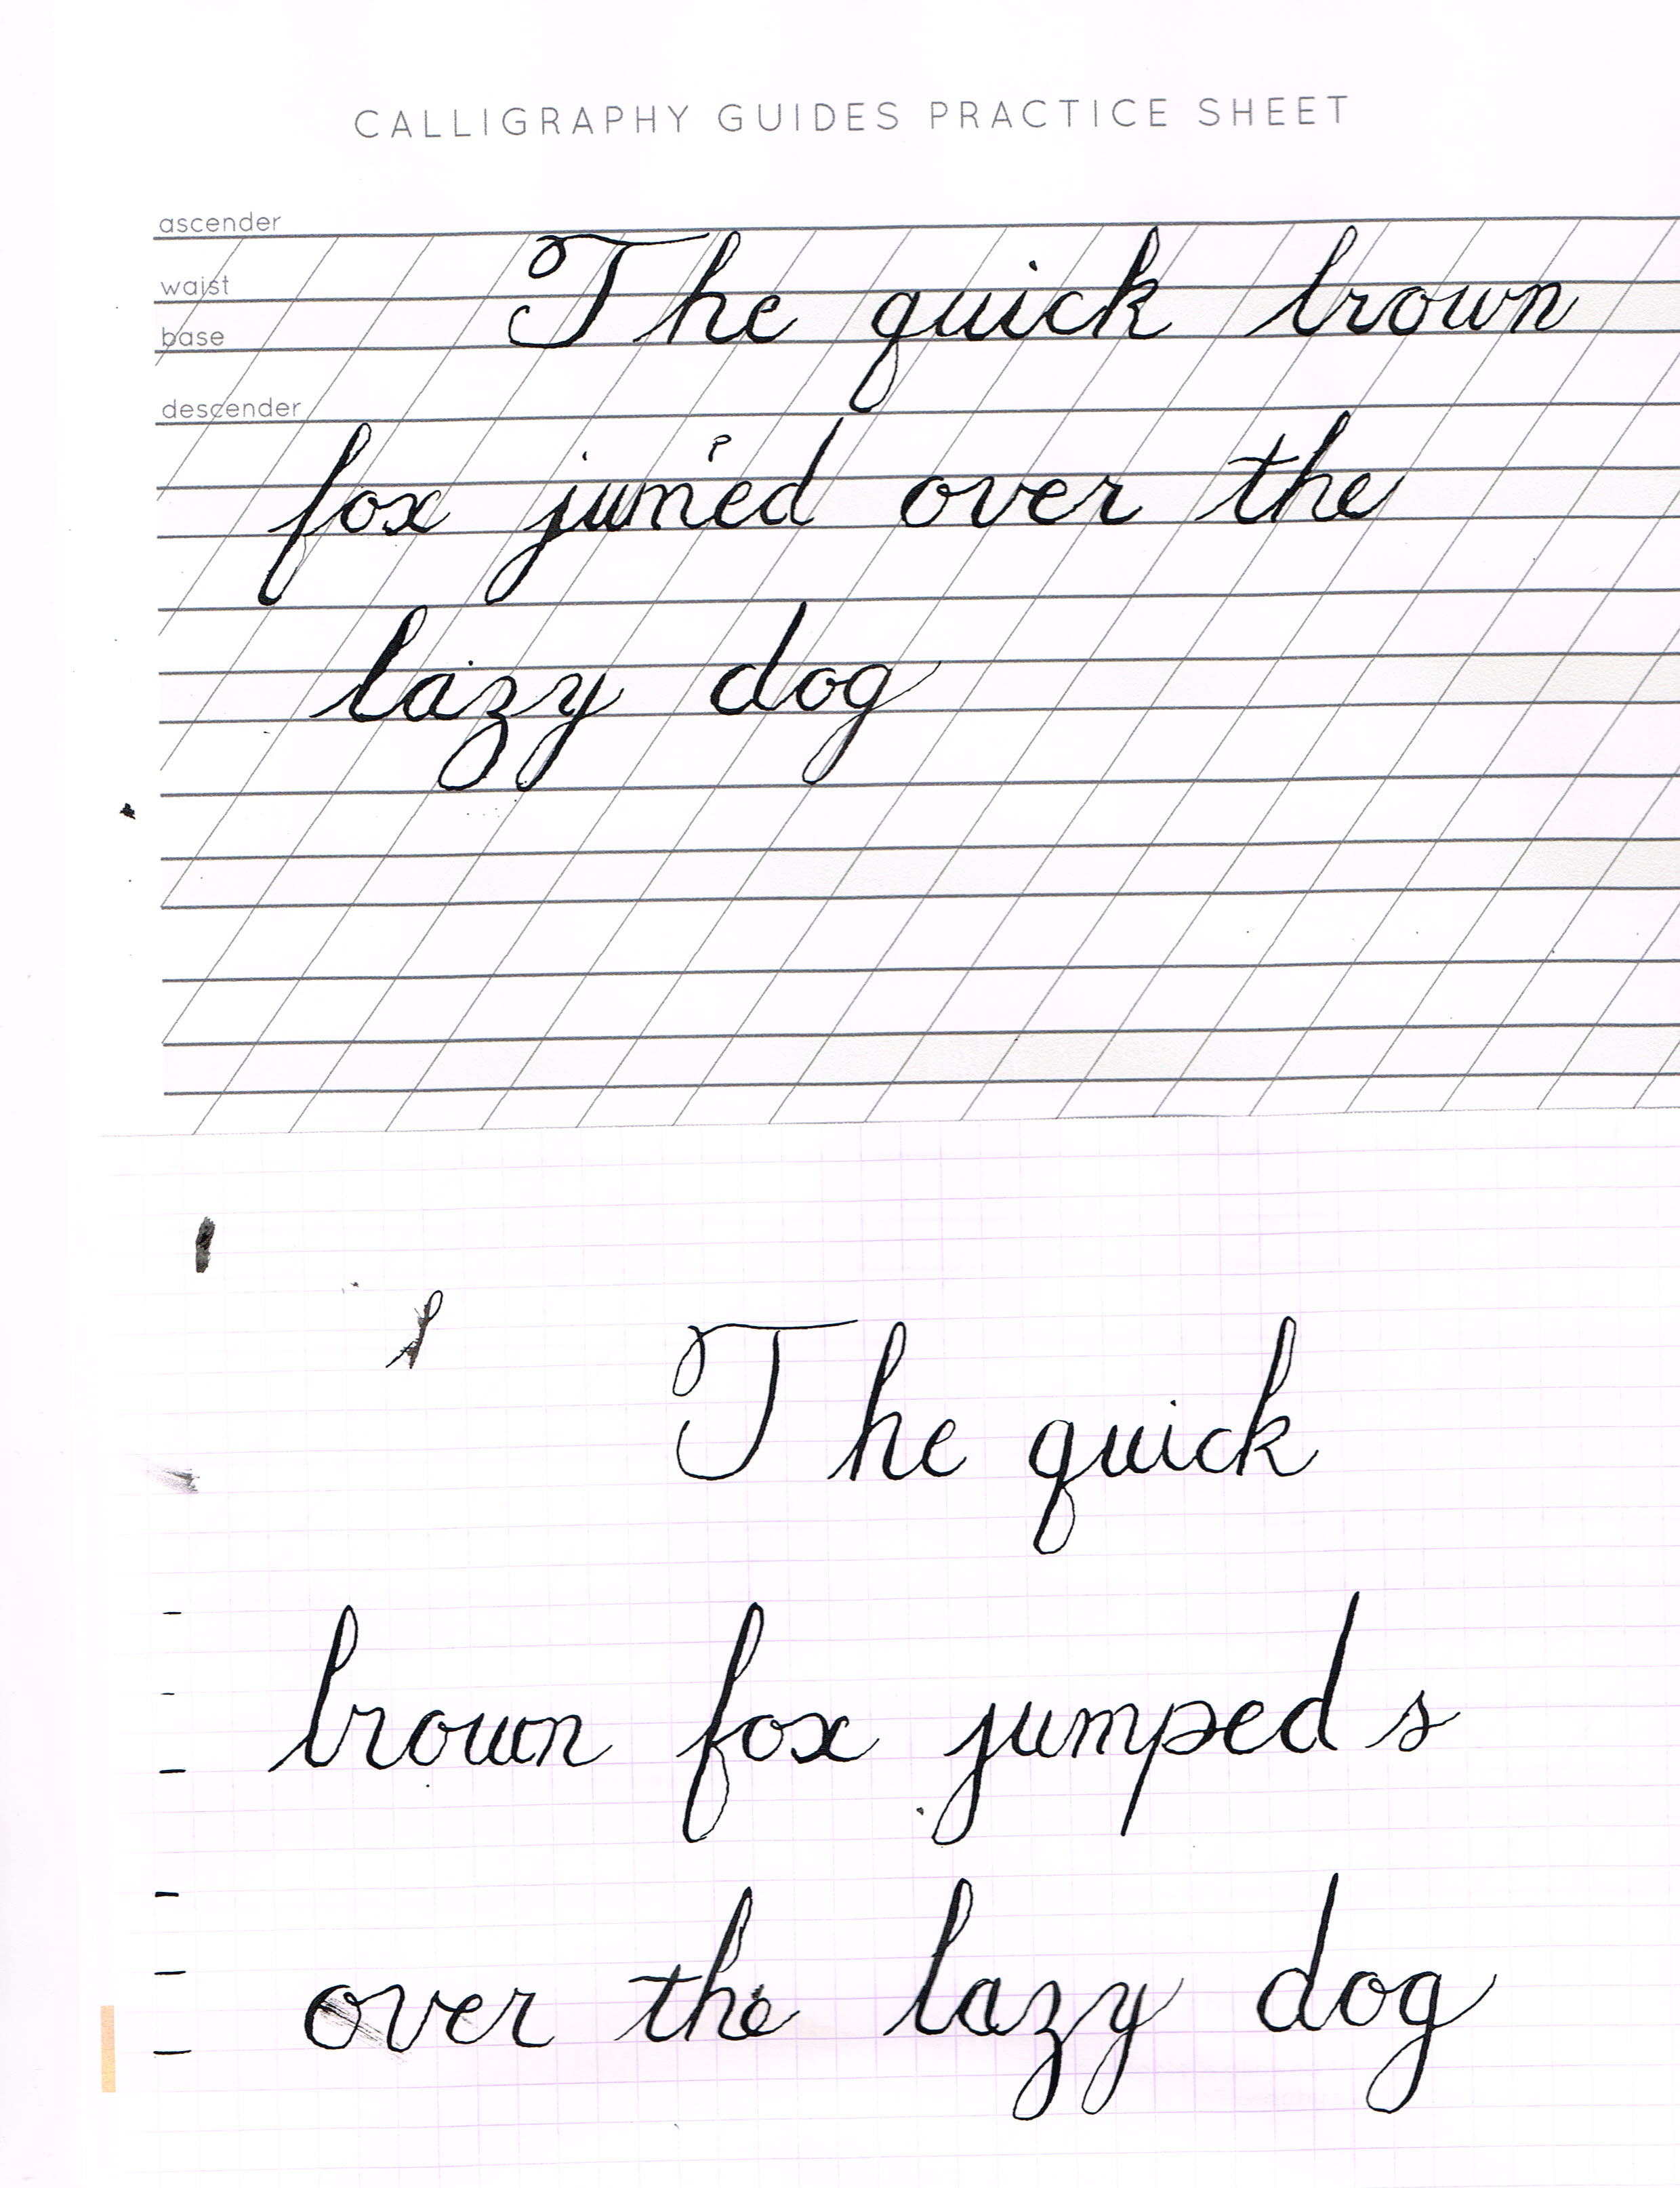 CALLIGRAPHY GUIDES PRACTICE SHEET
ascender
waist
base
descender
The quick brown
p
fox jumed over the
lazy dog
The quick
brown fox jumped s
over the lazy dog